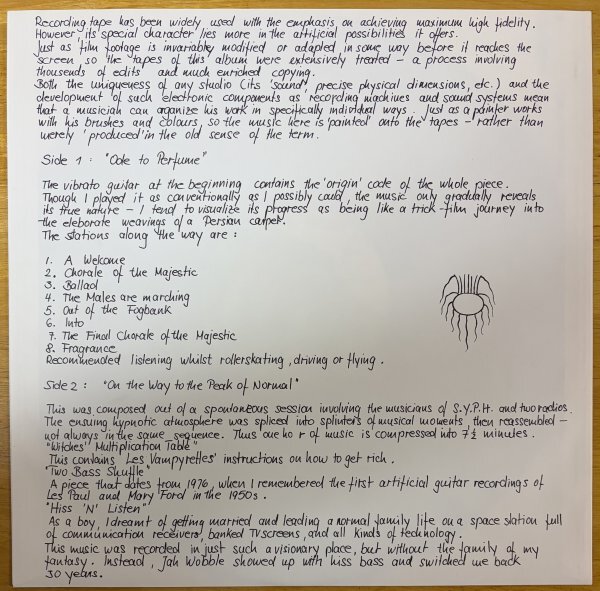 Recording tape has been widely used with the emphasis on achieving maximum high fidelity.
However, its special character lies more in the artificial possibilities it offers.
Just as film footage is invariably modified or adapted in some way before it reaches the
screen, so the tapes of this album were extensively treated – a process involving
thousands of edits and much enriched copying.
Both the uniqueness of any studio (its 'sound', precise physical dimensions, etc.) and the
development of such electronic components as recording machines and sound systems mean
that a musician can organize his work in specifically individual ways. Just as a painter works
with his brushes and colours, so the music here is 'painted' onto the tapes – rather than
merely 'produced' in the old sense of the term.
Side 1: "Ode to Perfume"
The vibrato guitar at the beginning contains the 'origin' code of the whole piece.
Though I played it as conventionally as I possibly could, the music only gradually reveals
its true nature – I tend to visualize its progress as being like a trick-film journey into
the eleborate weavings of a Persian carpet.
The stations along the way are:
1. A Welcome
2. Chorale of the Majestic
3. Ballad
4. The Males are marching
5. Out of the Fogbank
6. Into
7. The Final Chorale of the Majestic
8. Fragrance
Recommended listening whilst rollerskating, driving or flying.
Side 2: "On the Way to the Peak of Normal"
This was composed out of a spontaneous session involving the musicians of S.Y.P.H. and two radios.
The ensuing hypnotic atmosphere was spliced into splinters of musical moments, then reassembled –
not always in the same sequence. Thus one ho r of music is compressed into 7½ minutes.
"Witches' Multiplication Table"
This contains Les Vampyrettes' instructions on how to get rich.
"Two Bass Shuffle"
A piece that dates from 1976, when I remembered the first artificial guitar recordings of
Les Paul and Mary Ford in the 1950s.
"Hiss 'N' Listen"
As a boy, I dreamt of getting married and leading a normal family life on a space station full
of communication receivers, banked TV screens, and all kinds of technology.
This music was recorded in just such a visionary place, but without the family of my
fantasy. Instead, Jah Wobble showed up with hiss bass and switched me back
30 years.